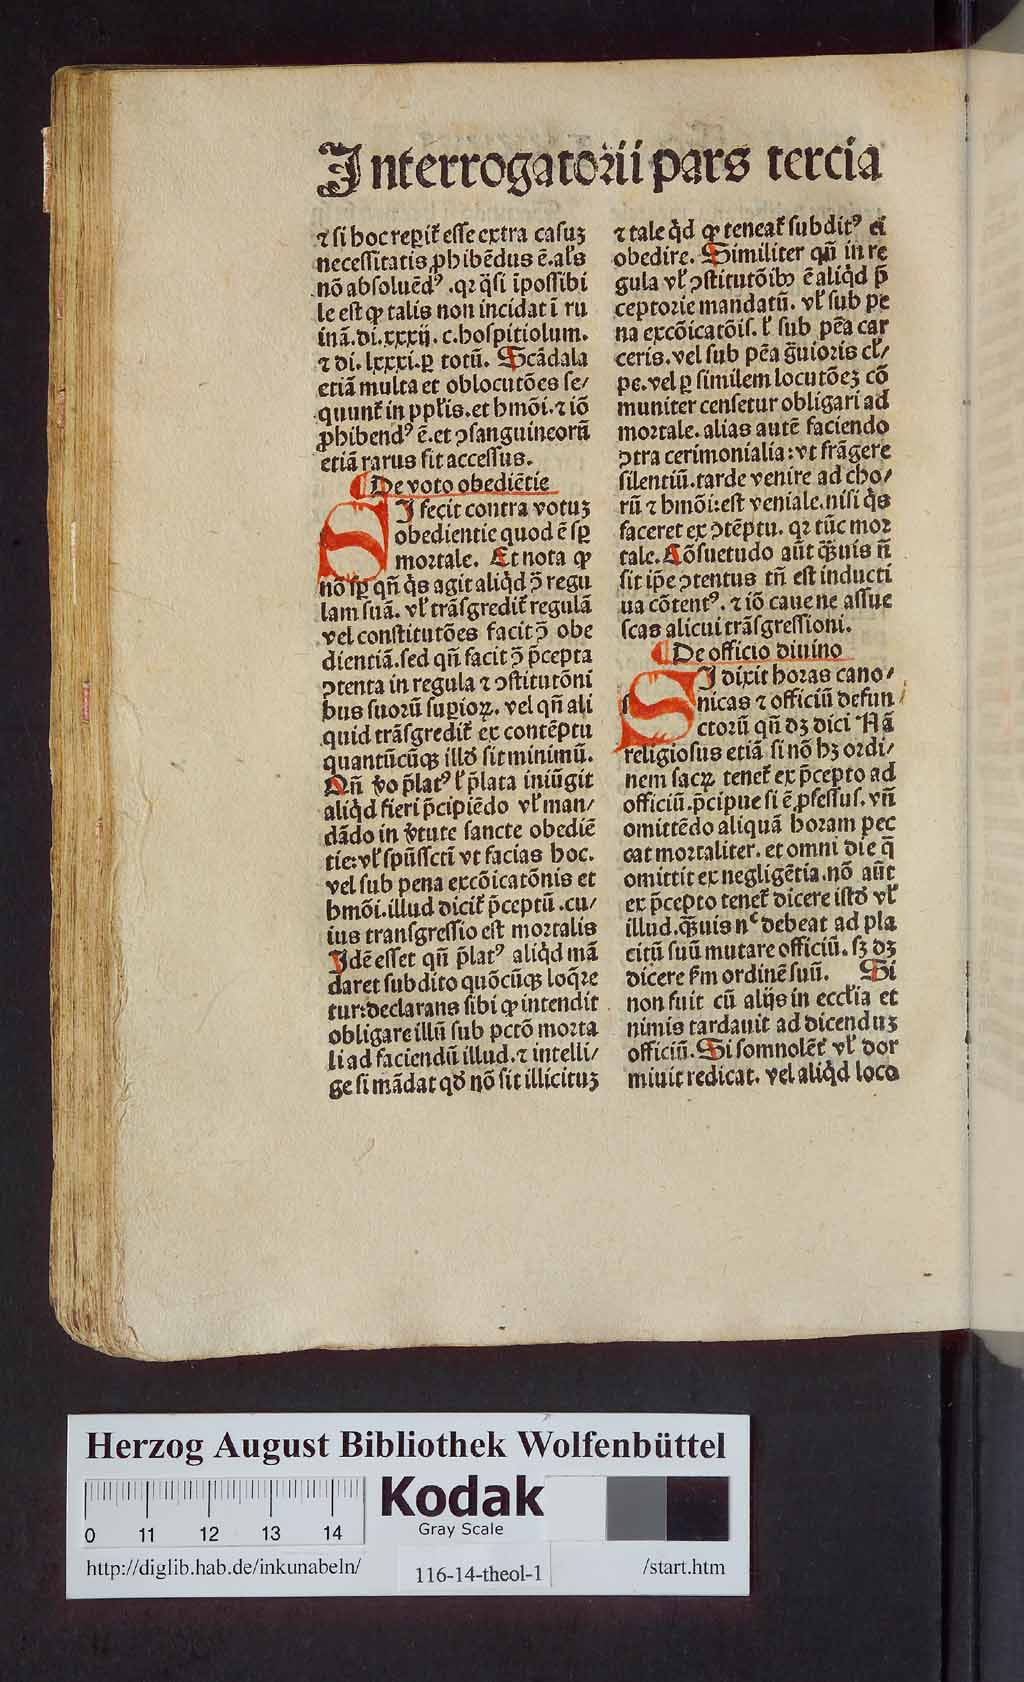 Interrogatorii pars tercia
⁊ si hoc reperit̃ esse extra casuꝫ
necessitatis ꝓhibẽdus ẽ. al̃s
nõ absoluẽdꝰ .qꝛ q̃si ĩpossibi
le est ꝙ talis non incidat ĩ ru
inã. di. xxxij. c. hospitiolum.
⁊ di. lxxxi. ꝑ totũ. Scãdala
etiã multa et oblocutões se/
quunt̃ in pp̃lis. et hmõi. ⁊ iõ
ꝓhibendꝰ ẽ. et ꝯsanguineorũ
etiã rarus fit accessus.
¶ De voto obediẽtie
SI fecit contra votuꝫ
obedientie quod ẽ sꝑ
mortale. Et nota ꝙ
nõ sꝑ qñ q̇s agit aliq̇d ↄ̃ regu
lam suã. vl̃ trãsgredit̃ regulã
vel constitutões facit ↄ̃ obe
dientiã. sed qñ facit ↄ̃ p̃cepta
ꝯtenta in regula ⁊ ꝯstitutõni
bus suorũ suꝑioꝝ. vel qñ ali
quid trãsgredit̃ ex contẽptu
quantũcũqꝫ illđ sit minimũ.
Qñ ṽo p̃latꝰ l̃ p̃lata iniũgit
aliq̇d fieri p̃cipiẽdo vl̃ man/
dãdo in ṽtute sancte obediẽ
tie: vl̃ spũssctĩ vt facias hoc.
vel sub pena excõicatõnis et
hmõi. illud dicit̃ p̃ceptũ .cu/
ius transgressio est mortalis
Idẽ esset qñ p̃latꝰ aliq̇d mã
daret subdito quõcũqꝫ loq̃re
tur: declarans sibi ꝙ intendit
obligare illũ sub pctõ morta
li ad faciendũ illud. ⁊ intelli/
ge si mãdat qđ nõ sit illicituꝫ
⁊ tale q̇d ꝙ teneat̃ subditꝰ ei
obedire. Similiter qñ in re
gula vl̃ ꝯstitutõibꝰ ẽ aliq̇d p̃
ceptorie mandatũ. vl̃ sub pe
na excõicatõis. l̃ sub pẽa car
ceris. vel sub pẽa g̃uioris cl̃/
pe. vel ꝑ similem locutõeꝫ cõ
muniter censetur obligari ad
mortale. alias autẽ faciendo
ꝯtra cerimonialia: vt frãgere
silentiũ. tarde venire ad cho/
rũ ⁊ hmõi: est veniale. nisi q̇s
faceret ex ꝯtẽptu. qꝛ tũc mor
tale. Cõsuetudo aũt qꝫ̃uis ñ
sit ip̃e ꝯtentus tñ est inducti
ua cõtentꝰ. ⁊ iõ caue ne assue
scas alicui trãsgressioni.
¶ De officio diuino
SI dixit horas cano/
nicas ⁊ officiũ defun
ctorũ qñ dꝫ dici Nã
religiosus etiã si nõ hꝫ ordi/
nem sacꝝ tenet̃ ex p̃cepto ad
officiũ. p̃cipue si ẽ ꝓfessus. vñ
omittẽdo aliquã horam pec
cat mortaliter. et omni die q̃
omittit ex negligẽtia. nõ aũt
ex p̃cepto tenet̃ dicere istđ vl̃
illud. qꝫ̃uis nᶜ debeat ad pla
citũ suũ mutare officiũ. sꝫ dꝫ
dicere ẜm ordinẽ suũ. Si
non fuit cũ alijs in eccl̃ia et
nimis tardauit ad dicenduꝫ
officiũ. Si somnolẽt̃ vl̃ dor
miuit redicat. vel aliq̇d loco
Herzog August Bibliothek Wolfenbüttel
0 11 12 13 14
Kodak
Gray Scale
http://diglib.hab.de/inkunabeln/
116-14-theol-1
/start.htm